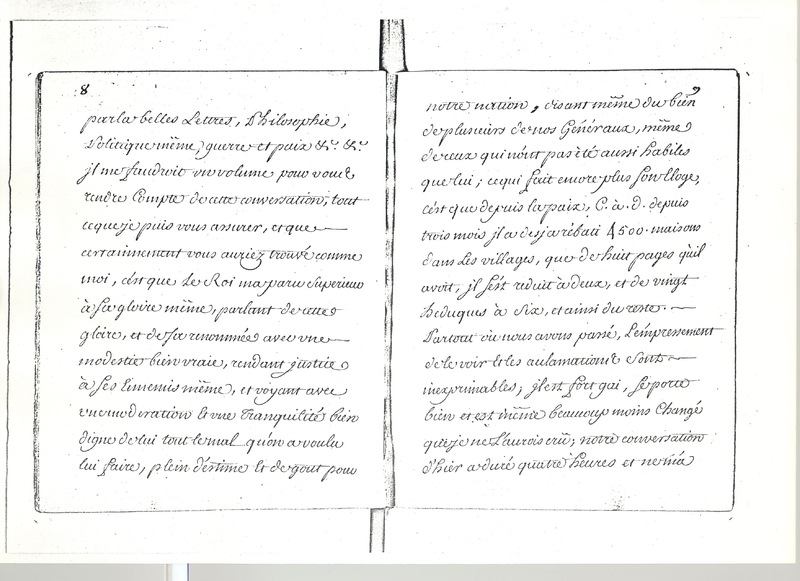 8
parla belles Lettres, Philosophie,
Politique même, guerre et paix &c. &c.
il me faudroit un volume pour vous
rendre Compte de cette conversation, tout
ce que je puis vous assurer, et que
certainnement vous auriez trouvé comme
moi, c'est que Le Roi m'a paru Superieur
à Sa gloire même, parlant de cette
gloire, et de Sa renommée avec une
modestie bien vraie, rendant justice
à Ses Ennemis même, et voyant avec
une moderation et une Tranquilité bien
digne de lui tout le mal qu'on a voulu
lui faire, plein d'estime et de gout pour
9
notre nation, disant même du bien
de plusieurs de nos Généraux, même
de ceux qui n'ont pas été aussi habiles
que lui; ce qui fait encore plus Son Eloge,
c'est que depuis la paix, C. à. d. depuis
trois mois il a desja rebati 4500. maisons
dans Les villages, que de huit pages qu'il
avoit, il s'est reduit à deux, et de vingt
heduques à Six, et ainsi du reste.
Partout où nous avons passé, L'empressement
de le voir et les aclamations Sont
inexprimables; il est fort gai, Se porte
bien et est même beaucoup moins Changé
que je ne L'aurois crû; notre conversation
d'hier a duré quatre heures et ne m'a